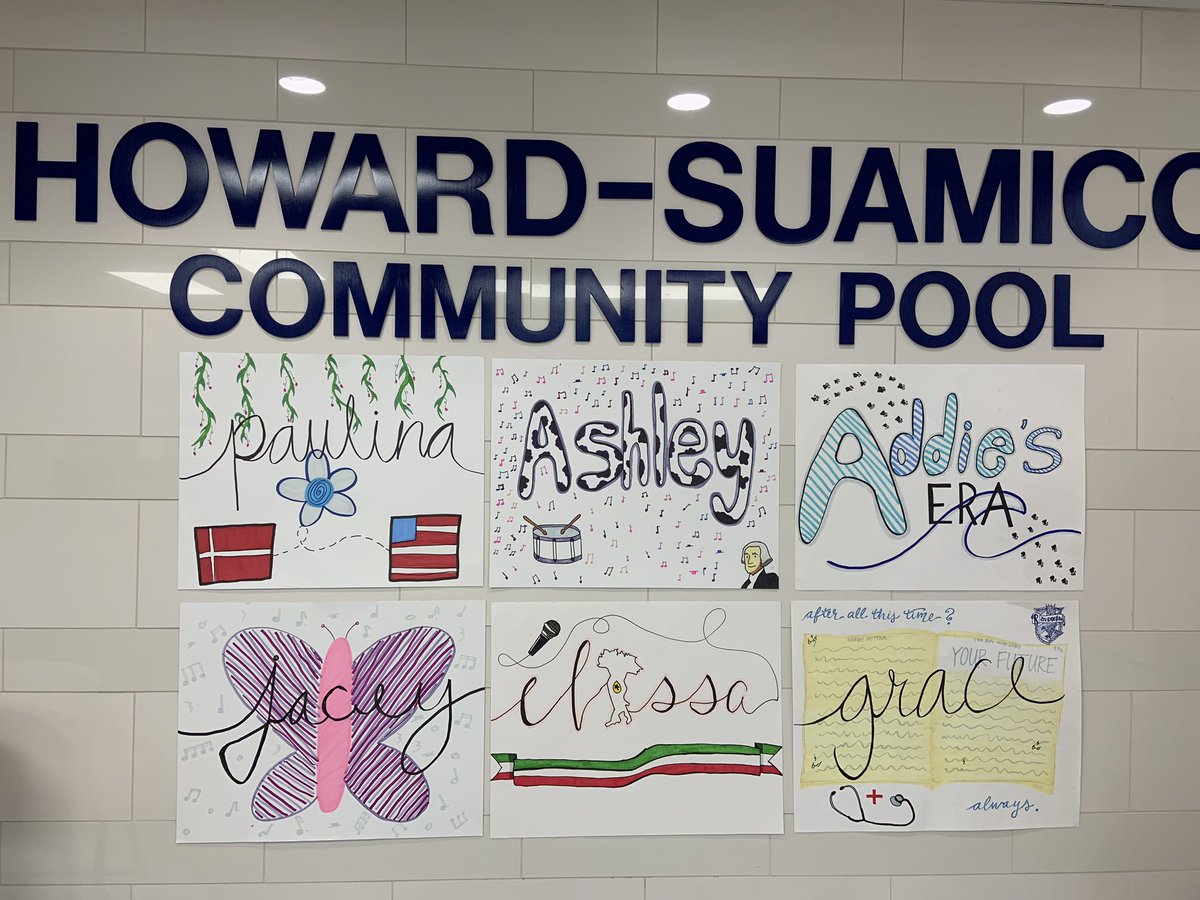 HOWARD-SUAMICO
COMMUNITY POOL
paulina
Ashley
Addie's
ERA
Jacey
elissa
after all this time?
HARRY POTTER
YOUR FUTURE
grace
always.